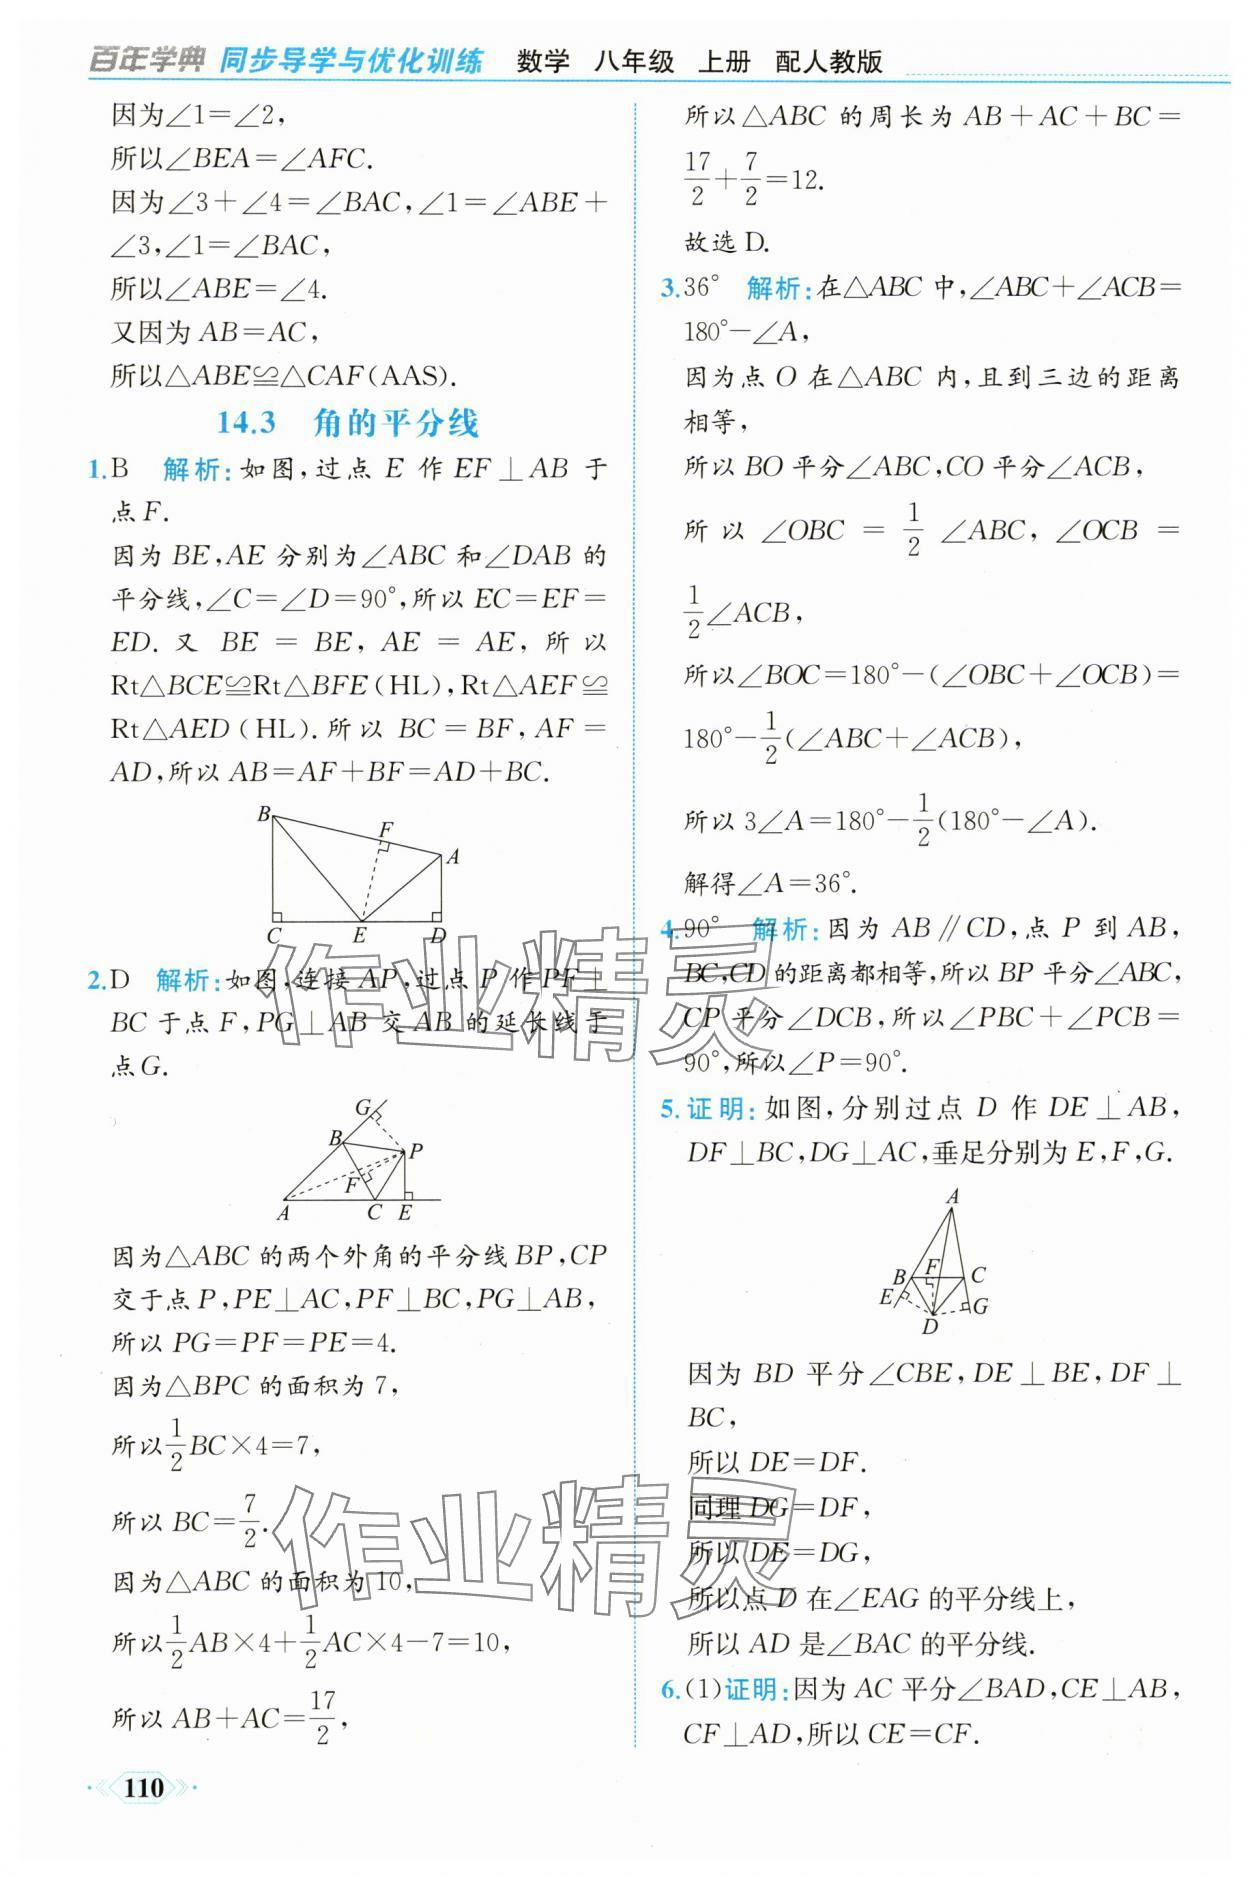 百年学典 同步导学与优化训练 数学 八年级 上册 配人教版
因为∠1=∠2,
所以∠BEA=∠AFC.
因为∠3+∠4=∠BAC,∠1=∠ABE+
∠3,∠1=∠BAC,
所以∠ABE=∠4.
又因为AB=AC,
所以△ABE≌△CAF(AAS).
14.3 角的平分线
1.B 解析:如图,过点E作EF⊥AB于
点F.
因为BE,AE分别为∠ABC和∠DAB的
平分线,∠C=∠D=90°,所以EC=EF=
ED.又 BE=BE,AE=AE,所以
Rt△BCE≌Rt△BFE(HL),Rt△AEF≌
Rt△AED(HL).所以BC=BF,AF=
AD,所以AB=AF+BF=AD+BC.
B
F
A
C
E
D
2.D 解析:如图,连接AP,过点P作PF⊥
BC于点F,PG⊥AB交AB的延长线于
点G.
G
B
P
F
A
C
E
因为△ABC的两个外角的平分线BP,CP
交于点P,PE⊥AC,PF⊥BC,PG⊥AB,
所以PG=PF=PE=4.
因为△BPC的面积为7,
所以1/2BC×4=7,
所以BC=7/2.
因为△ABC的面积为10,
所以1/2AB×4+1/2AC×4-7=10,
所以AB+AC=17/2,
所以△ABC的周长为AB+AC+BC=
17/2+7/2=12.
故选D.
3.36° 解析:在△ABC中,∠ABC+∠ACB=
180°-∠A,
因为点O在△ABC内,且到三边的距离
相等,
所以BO平分∠ABC,CO平分∠ACB,
所以∠OBC=1/2∠ABC,∠OCB=
1/2∠ACB,
所以∠BOC=180°-(∠OBC+∠OCB)=
180°-1/2(∠ABC+∠ACB),
所以3∠A=180°-1/2(180°-∠A).
解得∠A=36°.
4.90° 解析:因为AB∥CD,点P到AB,
BC,CD的距离都相等,所以BP平分∠ABC,
CP平分∠DCB,所以∠PBC+∠PCB=
90°,所以∠P=90°.
5.证明:如图,分别过点D作DE⊥AB,
DF⊥BC,DG⊥AC,垂足分别为E,F,G.
A
B
F
C
E
G
D
因为BD平分∠CBE,DE⊥BE,DF⊥
BC,
所以DE=DF.
同理DG=DF,
所以DE=DG,
所以点D在∠EAG的平分线上,
所以AD是∠BAC的平分线.
6.(1)证明:因为AC平分∠BAD,CE⊥AB,
CF⊥AD,所以CE=CF.
作业精灵
作业精灵
110